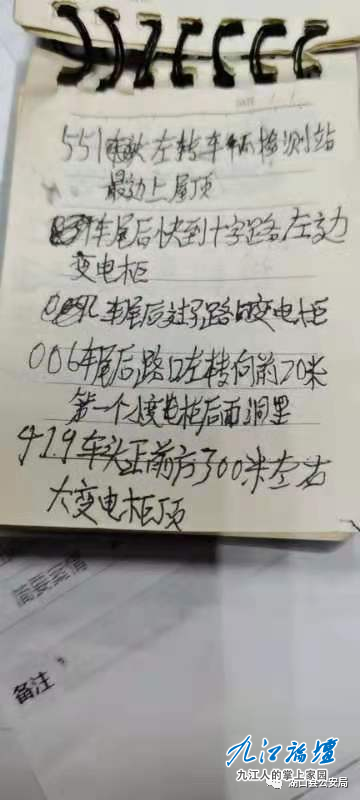 551车头左转车辆检测站
最边上屋顶
车尾后快到十字路左边
变电柜
车尾后过十字路口变电柜
006车尾后路口左转向前20米
第一个变电柜后面洞里
419车头正前方300米左右
大变电柜顶
备注
九江论坛
九江人的掌上家园
湖口县公安局